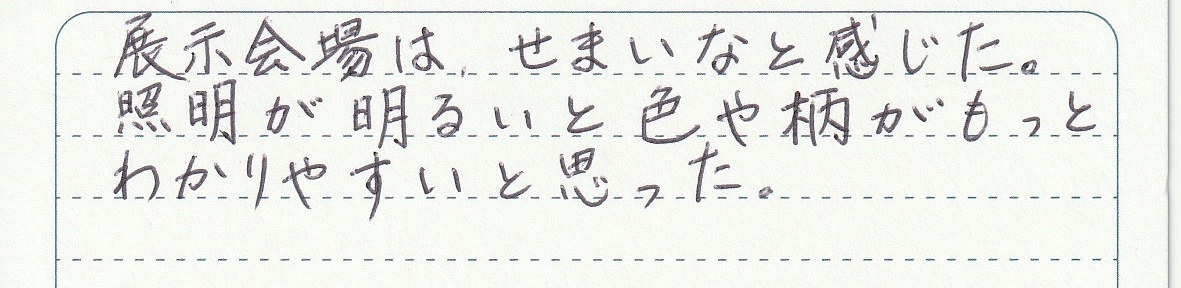 展示会場は、せまいなと感じた。
照明が明るいと色や柄がもっと
わかりやすいと思った。